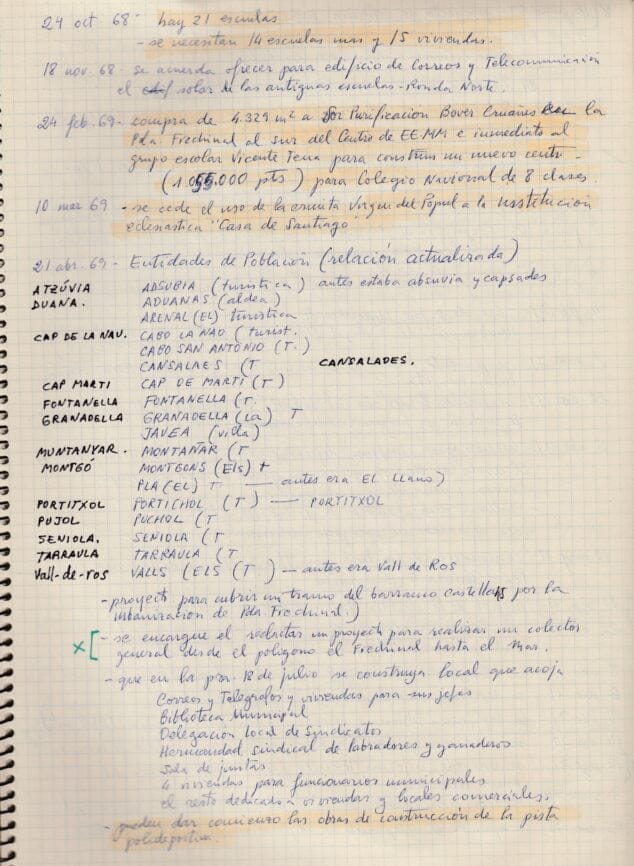 24 oct 68- hay 21 escuelas
- se necesitan 14 escuelas mas y 15 viviendas.
18 nov. 68- se acuerda ofrecer para edificio de Correos y Telecomunicación
el solar de las antiguas escuelas - Ronda Norte.
24 feb. 69- compra de 4.329 m² a Sor Purificación Bover Cruañes en la
Pda. Frechinal al sur del Centro de EE.MM e inmediato al
grupo escolar Vicente Tena para construir un nuevo centro
(1.055.000 pts) para Colegio Nacional de 8 clases.
10 mar 69 - se cede el uso de la ermita Virgen del Pópul a la Institución
eclesiastica "Casa de Santiago"
21 abr. 69- Entidades de Población (relación actualizada)
ATZÚVIA ADSUBIA (turistica) antes estaba absuvia y capsades
DUANA. ADUANAS (aldea)
ARENAL (EL) turistica
CAP DE LA NAU. CABO LA NAO (turist.
CABO SAN ANTONIO (T.)
CANSALAES (T CANSALADES.
CAP MARTI CAP DE MARTÍ (T)
FONTANELLA FONTANELLA (T.
GRANADELLA GRANADELLA (La) T
JAVEA (villa)
MUNTANYAR. MONTAÑAR (T
MONTGÓ MONTGONS (Els) t
PLA (EL) T — antes era EL Llano)
PORTITXOL PORTICHOL (T) — PORTITXOL
PUJOL PUCHOL (T
SENIOLA. SENIOLA (T
TARRAULA TARRAULA (T
Vall-de-ros VALLS (ELS (T) — antes era Vall de Ros
- proyecto para cubrir un tramo del barranco Castellans por la
Urbanización de Pda. Frechinal.)
x [ - se encargue el redactar un proyecto para realizar un colector
general desde el poligono el Frechinal hasta el Mar.
- que en la pza. 18 de julio se construya local que acoja
Correos y Telegrafos y viviendas para sus jefes
Biblioteca Municipal
Delegación local de Sindicatos
Hermandad sindical de Labradores y ganaderos
Sala de juntas
4 viviendas para funcionarios municipales
el resto dedicado a viviendas y locales comerciales.
- pueden dar comienzo las obras de construcción de la pista
polideportiva.